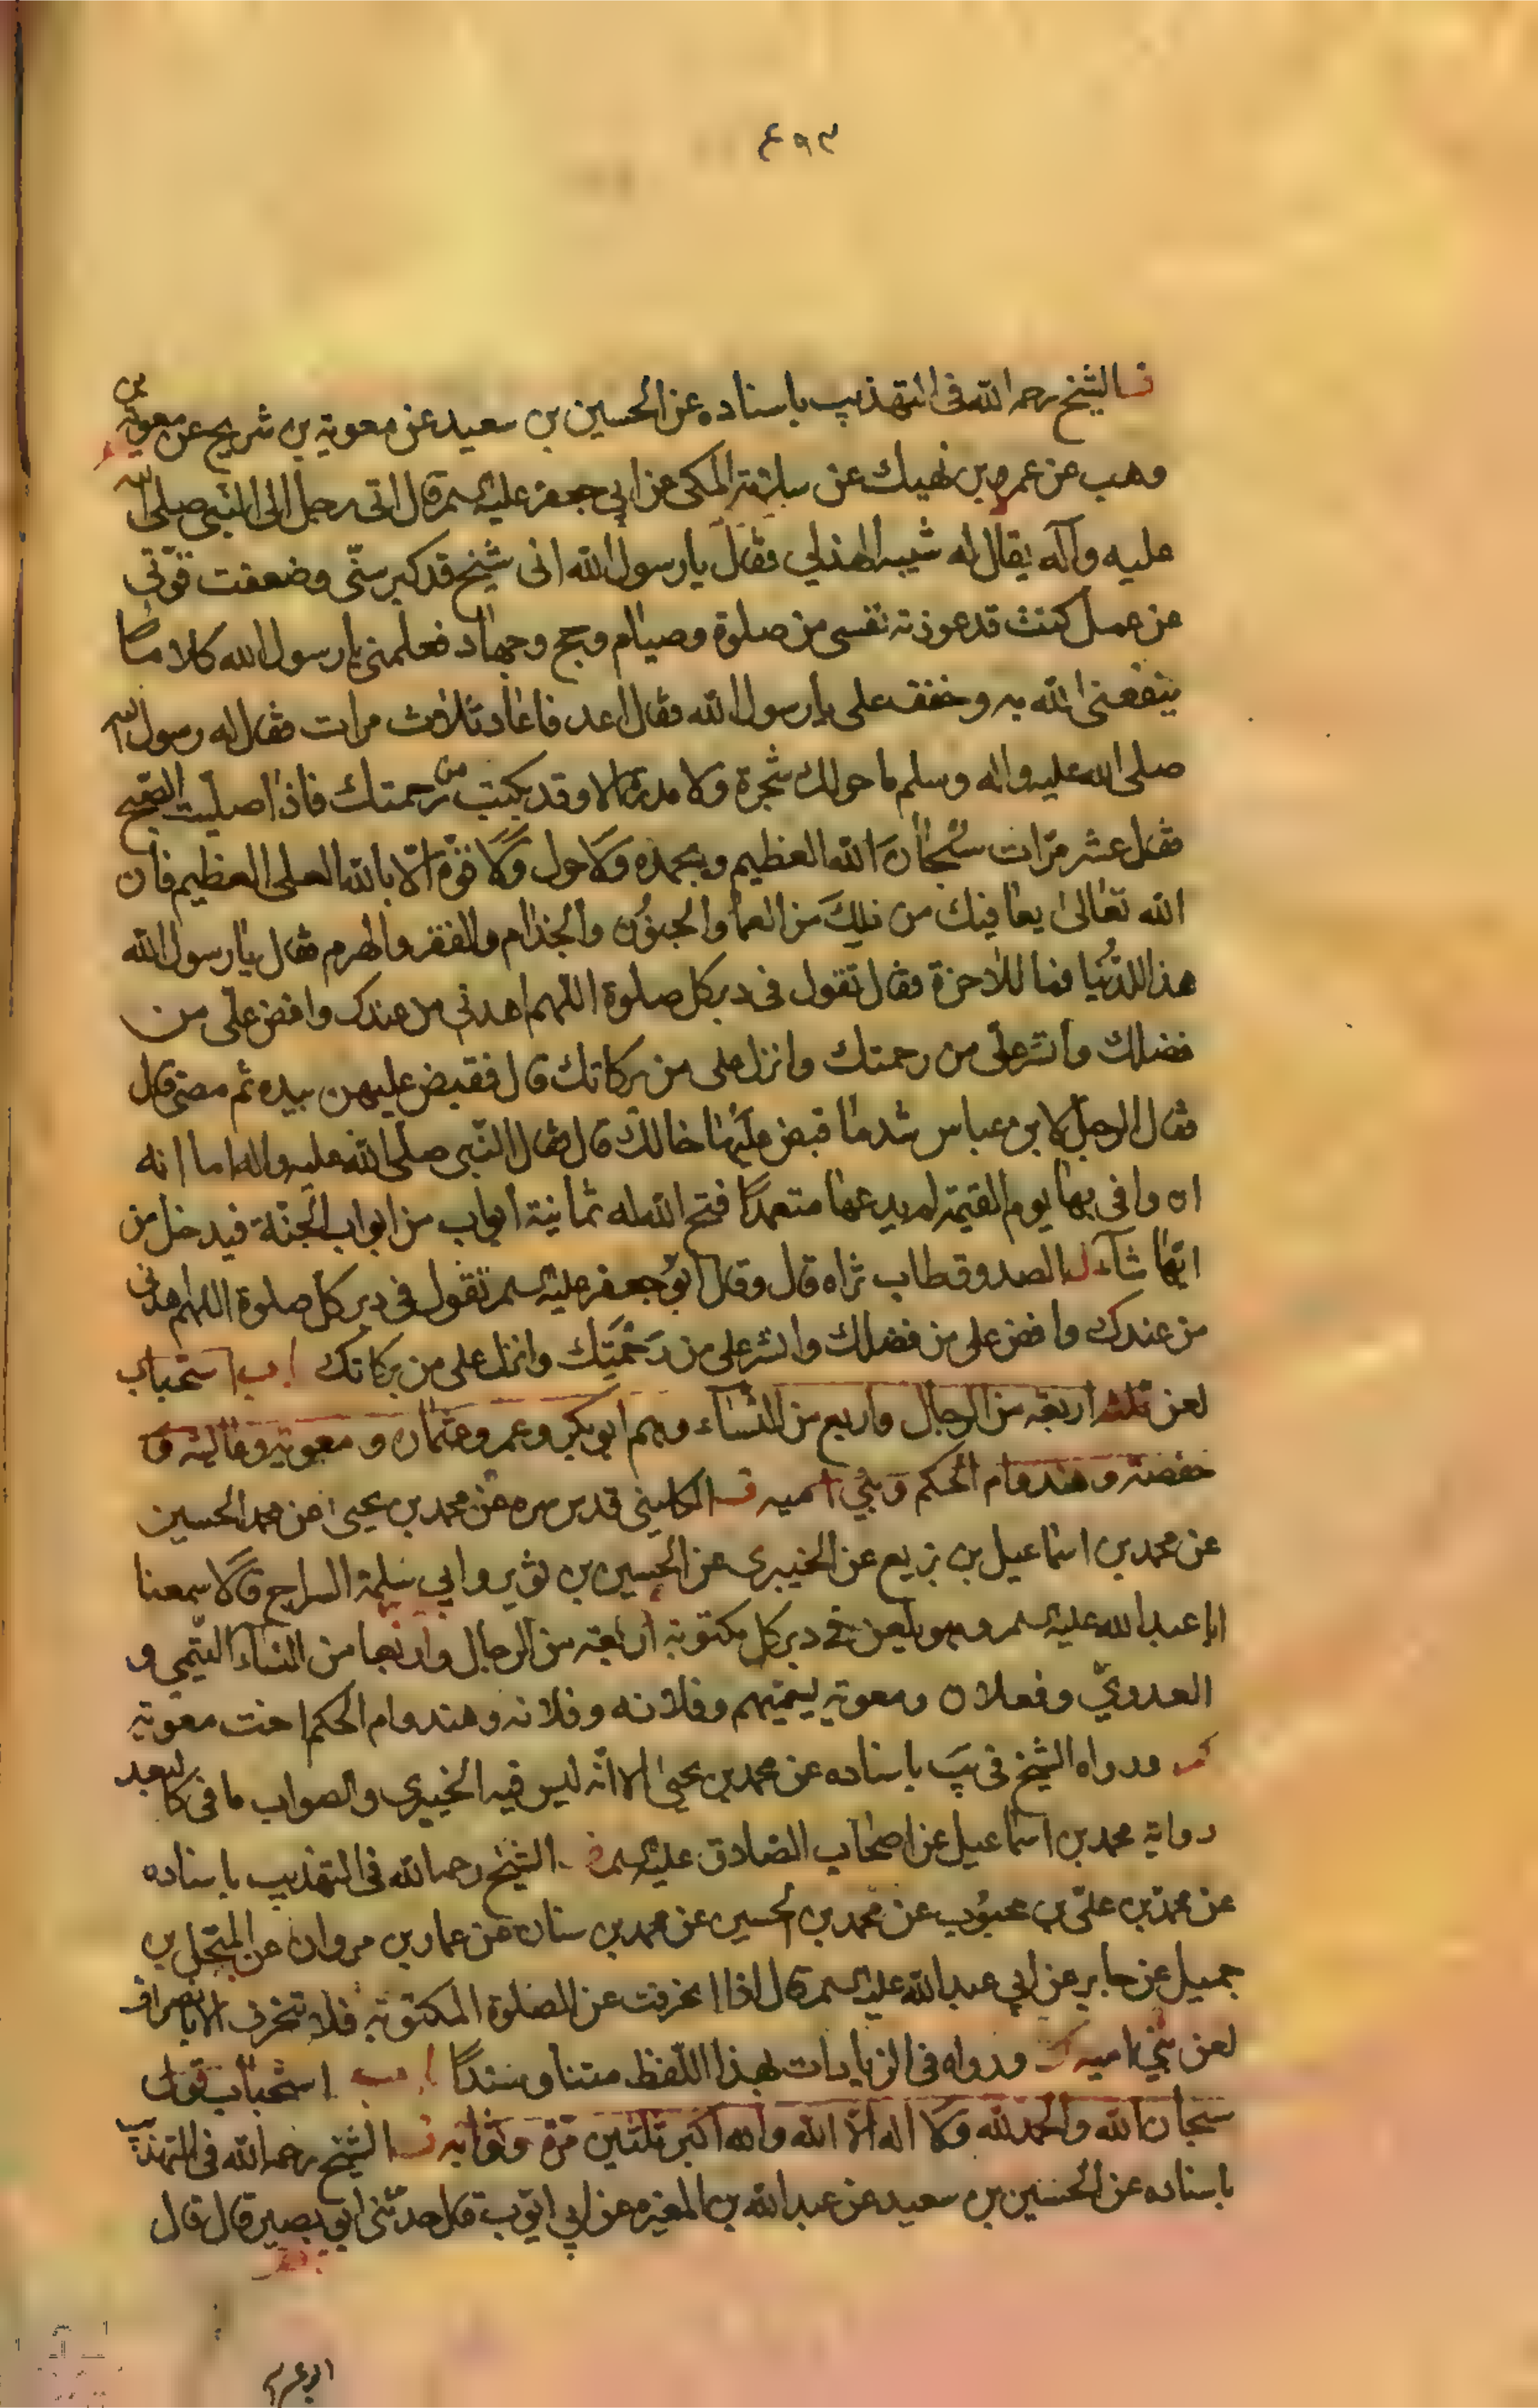 ٤٩٣
الشيخ رحمه الله فى التهذيب باسناده عن الحسين بن سعيد عن معوية بن شريح عن معوية بن
وهب عن عمرو بن نهيك عن المكى عن ابى جعفر عليه السلم قال اتى رجل الى النبى صلى الله
عليه وآله يقال له شيبه الهذلى فقال يا رسول الله انى شيخ قد كبر سنّى وضعفت قوّتى
عن عمل كنت قد عوذته نفسى من صلوة وصيام وحج وجهاد فعلمنى يا رسول الله كلاما
ينفعنى الله به وخفف على يا رسول الله فقال اعد فاعاد ثلاث مرات فقال له رسول الله
صلى الله عليه واله وسلم ما حولك شجرة ولا مدرة الا وقد بكيت من رحمتك فاذا صليت الصبح
فقل عشر مرّات سُبحانَ الله العظيم وبحمده ولا حول ولا قوّة الّا بالله العلى العظيم فان
الله تعالى يعافيك من ذلك من العما والجنون والجذام والفقر والهرم فقال يا رسول الله
هذا للدُّنيا فما للاخرة فقال تقول فى دبر كل صلوة اللهم اهدنى من عندك وافض علّى من
فضلك وانشر علّى من رحمتك وانزل على من بركاتك قال فقبض عليهن بيده ثم مضى قال
فقال الرجل لابن عباس شد ما قبض عليها خالك قال فقال النّبى صلى الله عليه واله اما انه
ان وافى بها يوم القيمة لم يدعها متعمدًا فتح الله له ثمانية ابواب من ابواب الجنّة فيدخل من
ايّها شاء الصدوق طاب ثراه قال وقال ابو جعفر عليه السلم تقول فى دبر كل صلوة اللهم اهدنى
من عندك وافض على من فضلك وانشر على من رَحْمَتِك وانزل على من بركاتك ا ب استحباب
لعن ثلثه اربعة من الرجال واربع من النساء وهم ابو بكر وعمر وعثمان و معوية وعايشه و
حفصة وهند وام الحكم وبنى اميه الكلينى قدس سره عن محمد بن يحيى عن محمد الحسين
عن محمد بن اسماعيل بن بزيع عن الخيبرى عن الحسين بن ثوير وابى سلمة السراج قالا سمعنا
ابا عبد الله عليه السلم وهو يلعن فى دبر كل مكتوبة اربعة من الرجال واربعا من النساء التّيمى و
العدوىّ وفعلان ومعوية يسميهم وفلانه وفلانه وهند وام الحكم اخت معوية
ورواه الشيخ فى يب باسناده عن محمد بن يحيى الا انّه ليس فيه الخيبرى والصواب ما فى كا لبعد
رواية محمد بن اسماعيل عن اصحاب الصّادق عليه السلم الشيخ رحمه الله فى التهذيب باسناده
عن محمد بن علىّ بن محبوب عن محمد بن الحسين عن محمد بن سنان عن عمار بن مروان عن المنخل بن
جميل عن جابر عن ابى عبد الله عليه السلم قال اذا انحرفت عن الصلوة المكتوبة فلا تنحرف الا بانصراف
لعن بنى اميه ورواه فى الزيادات بهذا اللّفظ متنا وسندًا ا ب استحباب قول
سبحان الله والحمد لله ولا اله الّا الله والله اكبر ثلثين مرّة وثوابه الشيخ رحمه الله فى التهذيب
باسناده عن الحسين بن سعيد عن عبد الله بن المغيره عن ابى ايّوب قال حدثنى ابو بصير قال قال